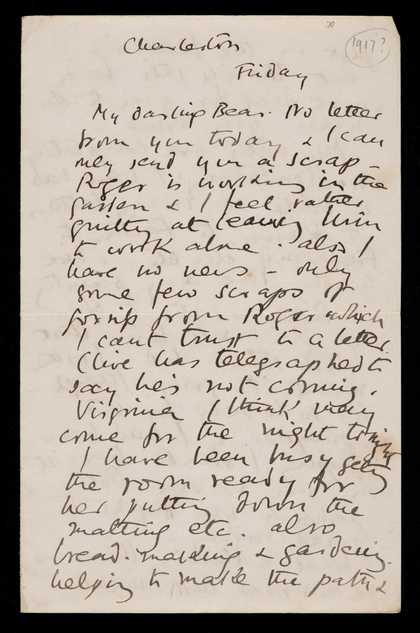 1917?
Charleston
Friday
My darling Bear. No letter
from you today & I can
only send you a scrap –
Roger is working in the
garden & I feel rather
guilty at leaving him
to work alone. also I
have no news – only
some few scraps of
gossip from Roger which
I cant trust to a letter.
Clive has telegraphed to
say he's not coming.
Virginia I think may
come for the night tonight
I have been busy getting
the room ready for
her putting down the
matting etc. also
bread-making & gardening.
helping to make the path &